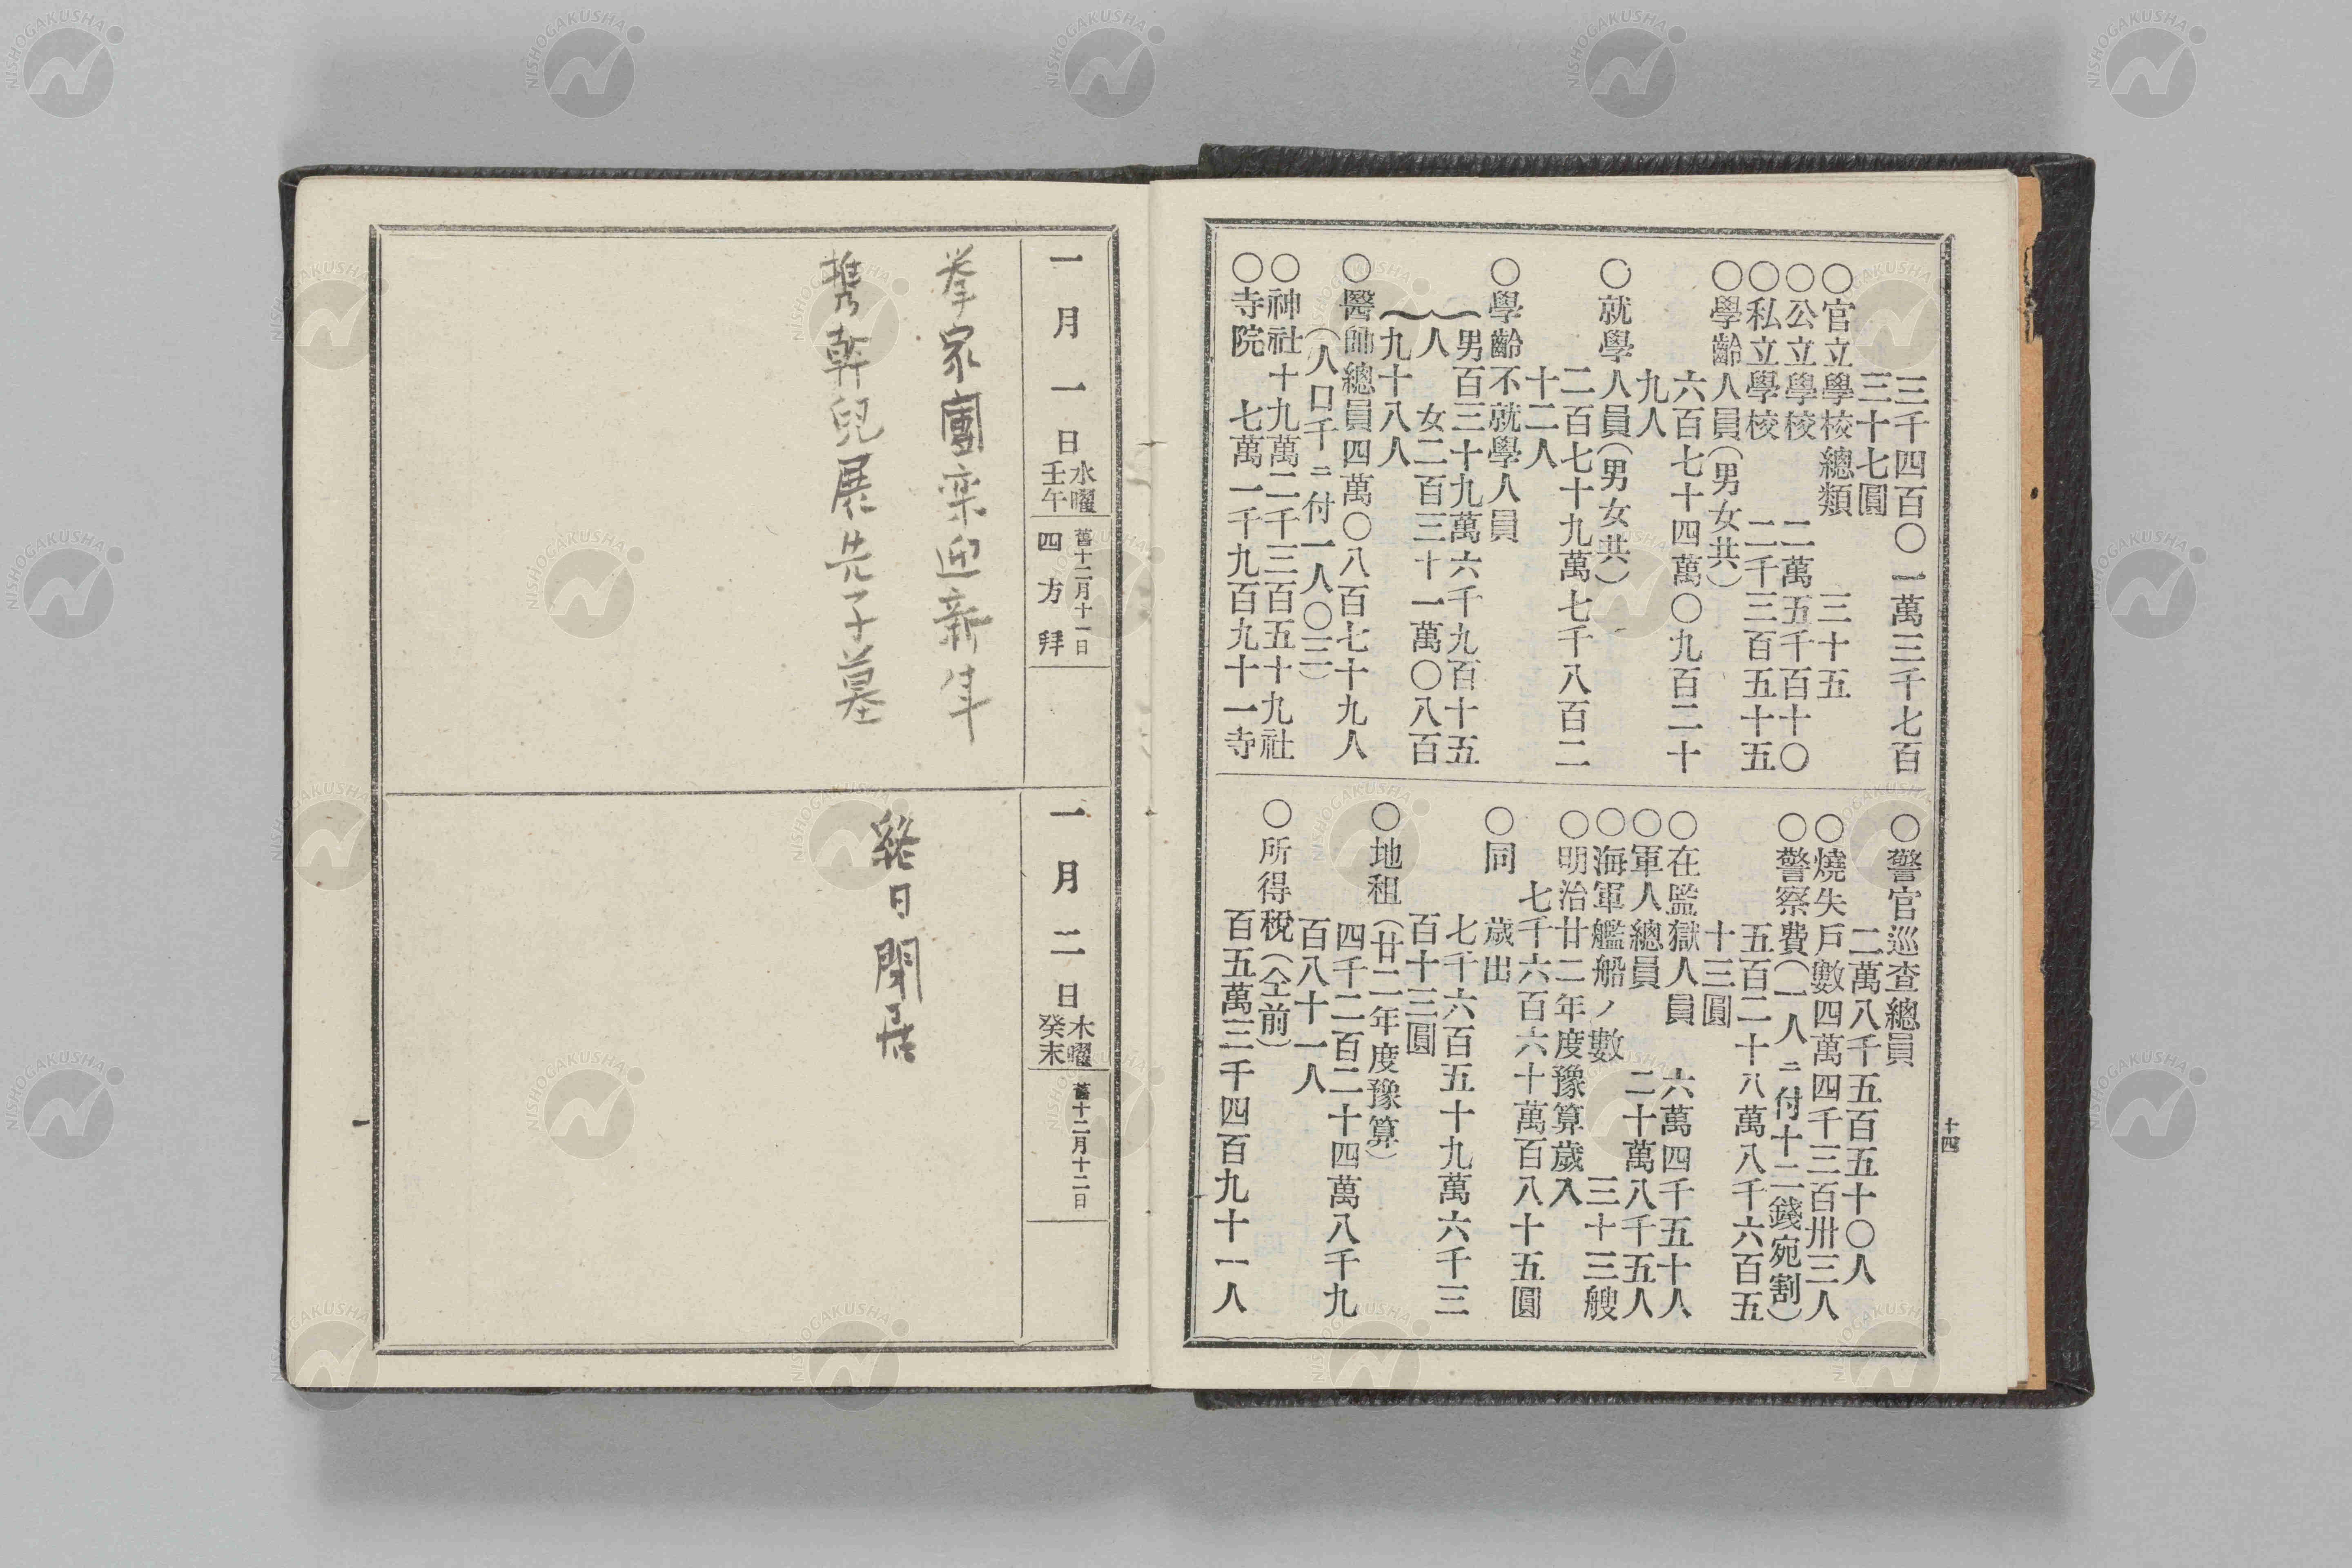 三千四百〇一萬三千七百
三十七圓
〇官立學校總類　三十五
〇公立學校　二萬五千百十〇
〇私立學校　二千三百五十五
〇學齡人員(男女共)
六百七十四萬〇九百二十
九人
〇就學人員(男女共)
二百七十九萬七千八百二
十二人
〇學齡不就學人員
男百三十九萬六千九百十五
人　女二百三十一萬〇八百
九十八人
〇醫師總員四萬〇八百七十九人
(人口千ニ付一人〇三)
〇神社十九萬二千三百五十九社
〇寺院　七萬一千九百九十一寺
〇警官巡査總員
二萬八千五百五十〇人
〇燒失戶數四萬四千三百卅三人
〇警察費(一人ニ付十二錢宛割)
五百二十八萬八千六百五
十三圓
〇在監獄人員　六萬四千五十人
〇軍人總員　二十萬八千五人
〇海軍艦船ノ數　三十三艘
〇明治廿二年度豫算歲入
七千六百六十萬百八十五圓
〇同　歲出
七千六百五十九萬六千三
百十三圓
〇地租(廿二年度豫算)
四千二百二十四萬八千九
百八十一人
〇所得稅(仝前)
百五萬三千四百九十一人
十四
一月一日
水曜
壬午
舊十二月十一日
四方拜
拳家團栾迎新年
携幹兒展先子墓
一月二日
木曜
癸未
舊十二月十二日
終日閑居
一
NISHOGAKUSHA